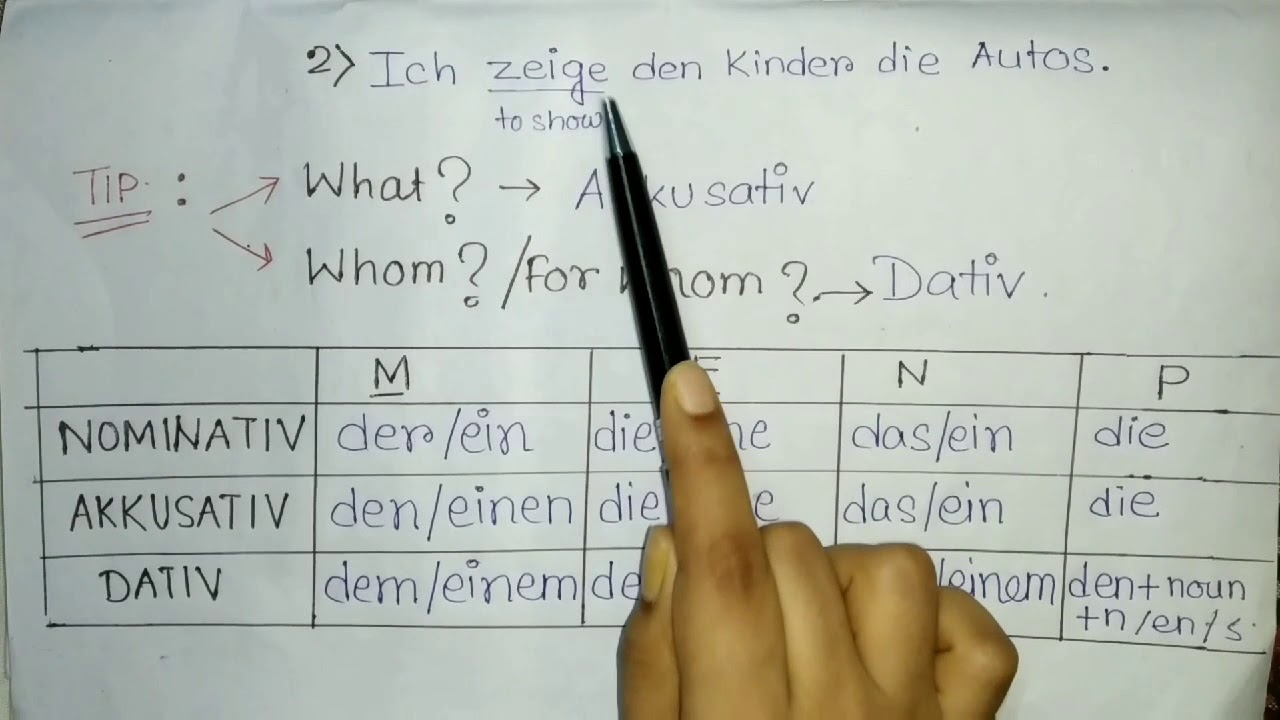 2) Ich zeige den Kinder die Autos.
to show
TIP. : What? → Akkusativ
Whom? / For whom? → Dativ.
M N P
NOMINATIV der/ein die das/ein die
AKKUSATIV den/einen die das/ein die
DATIV dem/einem /einem den + noun
+n/en/s.